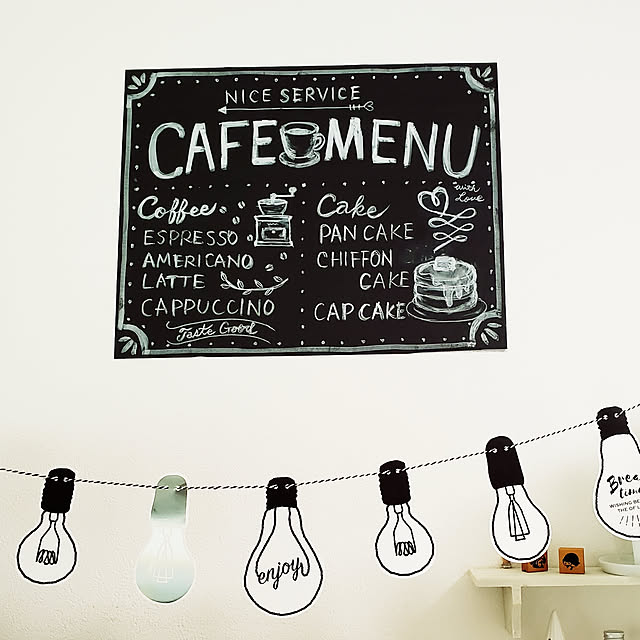 NICE SERVICE
CAFE MENU
Coffee
ESPRESSO
AMERICANO
LATTE
CAPPUCCINO
Taste Good
with
Love
Cake
PAN CAKE
CHIFFON
CAKE
CAP CAKE
enjoy
time
WISHING
THE OF